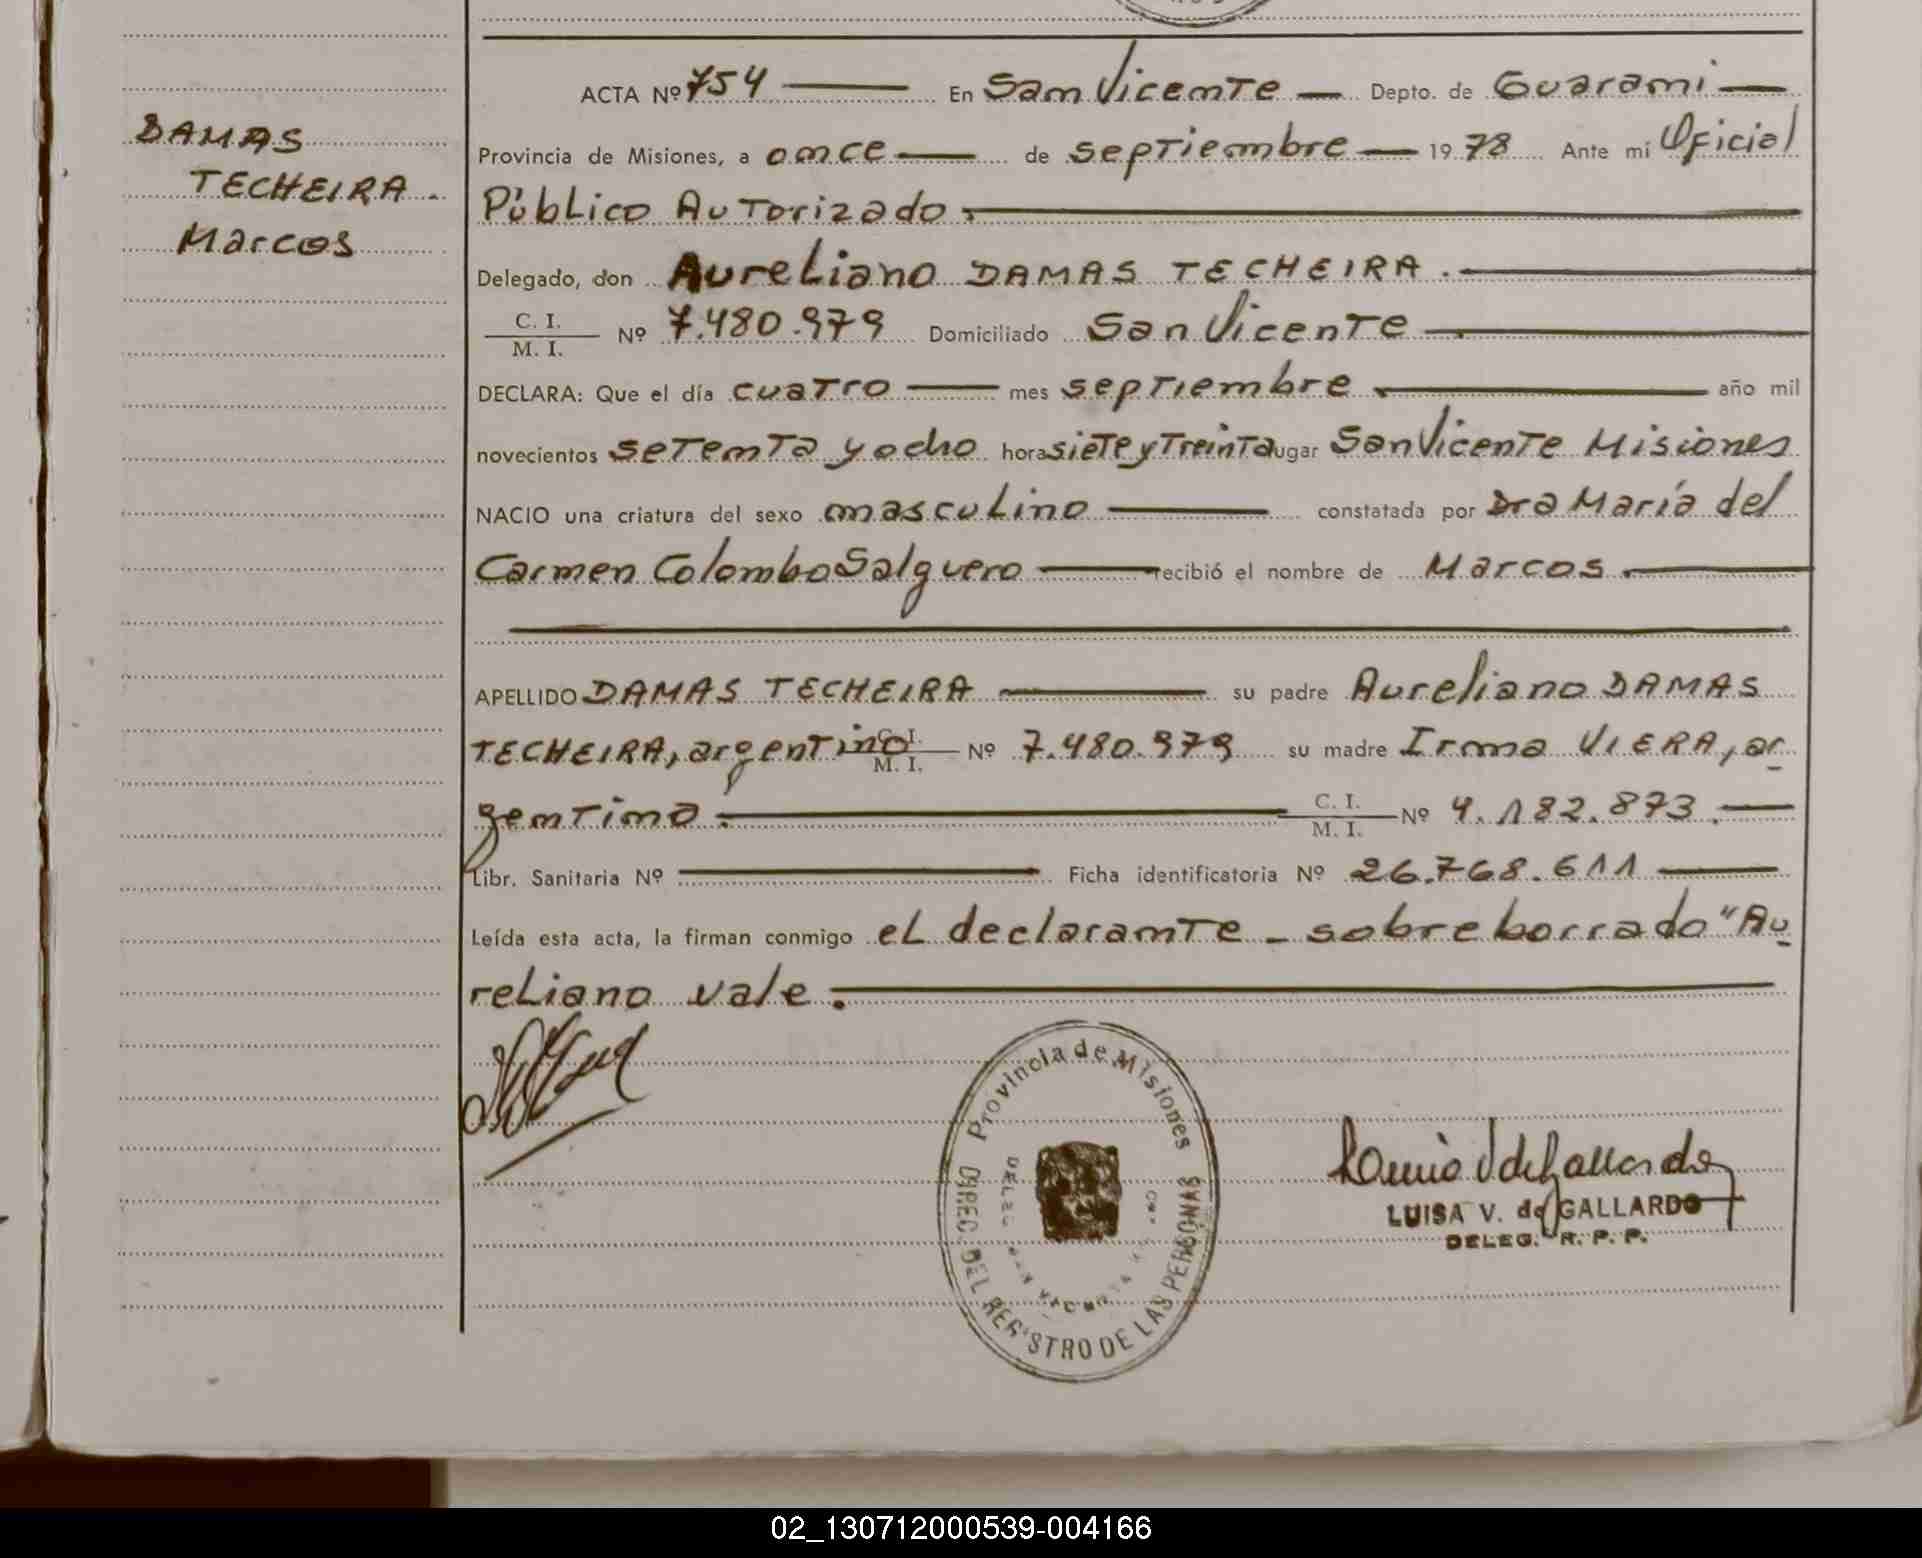 ACTA Nº 754 — En San Vicente — Depto. de Guaraní —
DAMAS
TECHEIRA.
Marcos
Provincia de Misiones, a once — de septiembre — 1978 Ante mí Oficial
Público Autorizado. —
Delegado, don Aureliano DAMAS TECHEIRA. —
C. I.
M. I. Nº 7.480.979 Domiciliado San Vicente —
DECLARA: Que el día cuatro — mes septiembre — año mil
novecientos setenta y ocho hora siete y Treinta lugar San Vicente Misiones
NACIO una criatura del sexo masculino — constatada por Dra María del
Carmen Colombo Salguero — recibió el nombre de Marcos. —
APELLIDO DAMAS TECHEIRA — su padre Aureliano DAMAS
TECHEIRA, argentino C. I. M. I. Nº 7.480.979 su madre Irma VIERA, ar
gentina. — C. I. M. I. Nº 4.182.873. —
Libr. Sanitaria Nº — Ficha identificatoria Nº 26.768.611 —
Leída esta acta, la firman conmigo el declarante - sobre borrado "Au
reliano vale. —
Provincia de Misiones
DIREC. DEL REGISTRO DE LAS PERSONAS
LUISA V. de GALLARDO
DELEG. R. P. P.
02_130712000539-004166